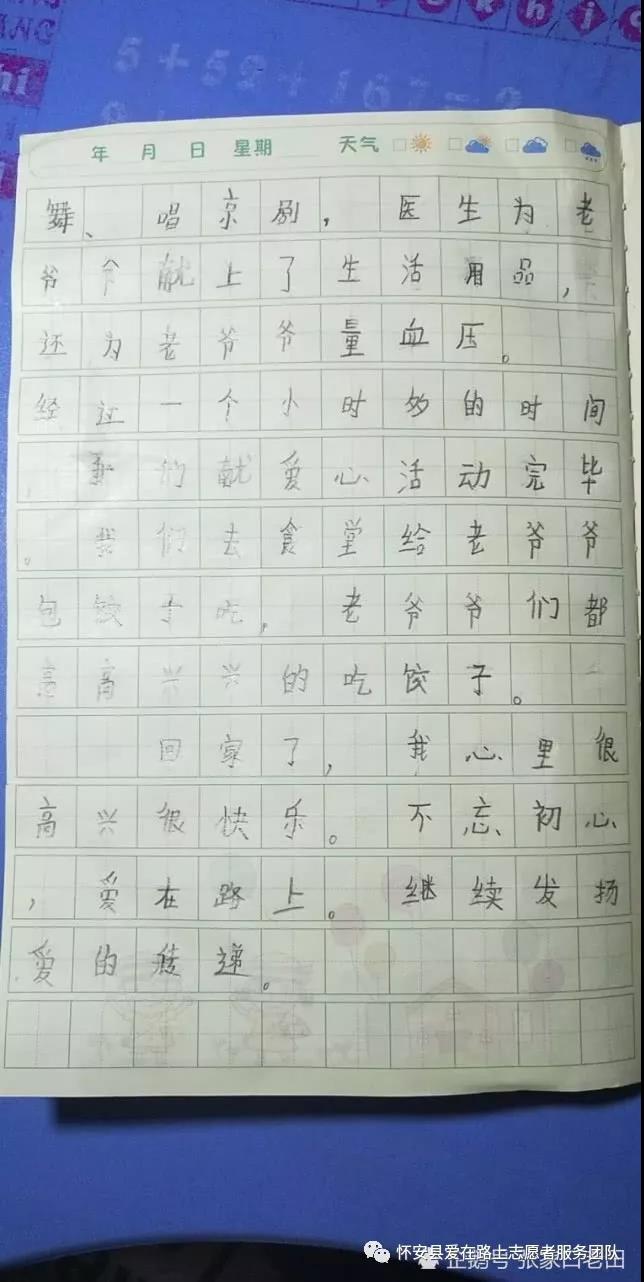 5+59+167=?
khi
hi
年 月 日 星期 天气
舞、唱京剧，医生为老
爷爷献上了生活用品，
还为老爷爷量血压。
经过一个小时多的时间
，我们献爱心活动完毕
。我们去食堂给老爷爷
包饺子吃，老爷爷们都
高高兴兴的吃饺子。
回家了，我心里很
高兴很快乐。不忘初心
，爱在路上。继续发扬
爱的传递。
怀安县爱在路上志愿者服务团队
企鹅号 张家口老田